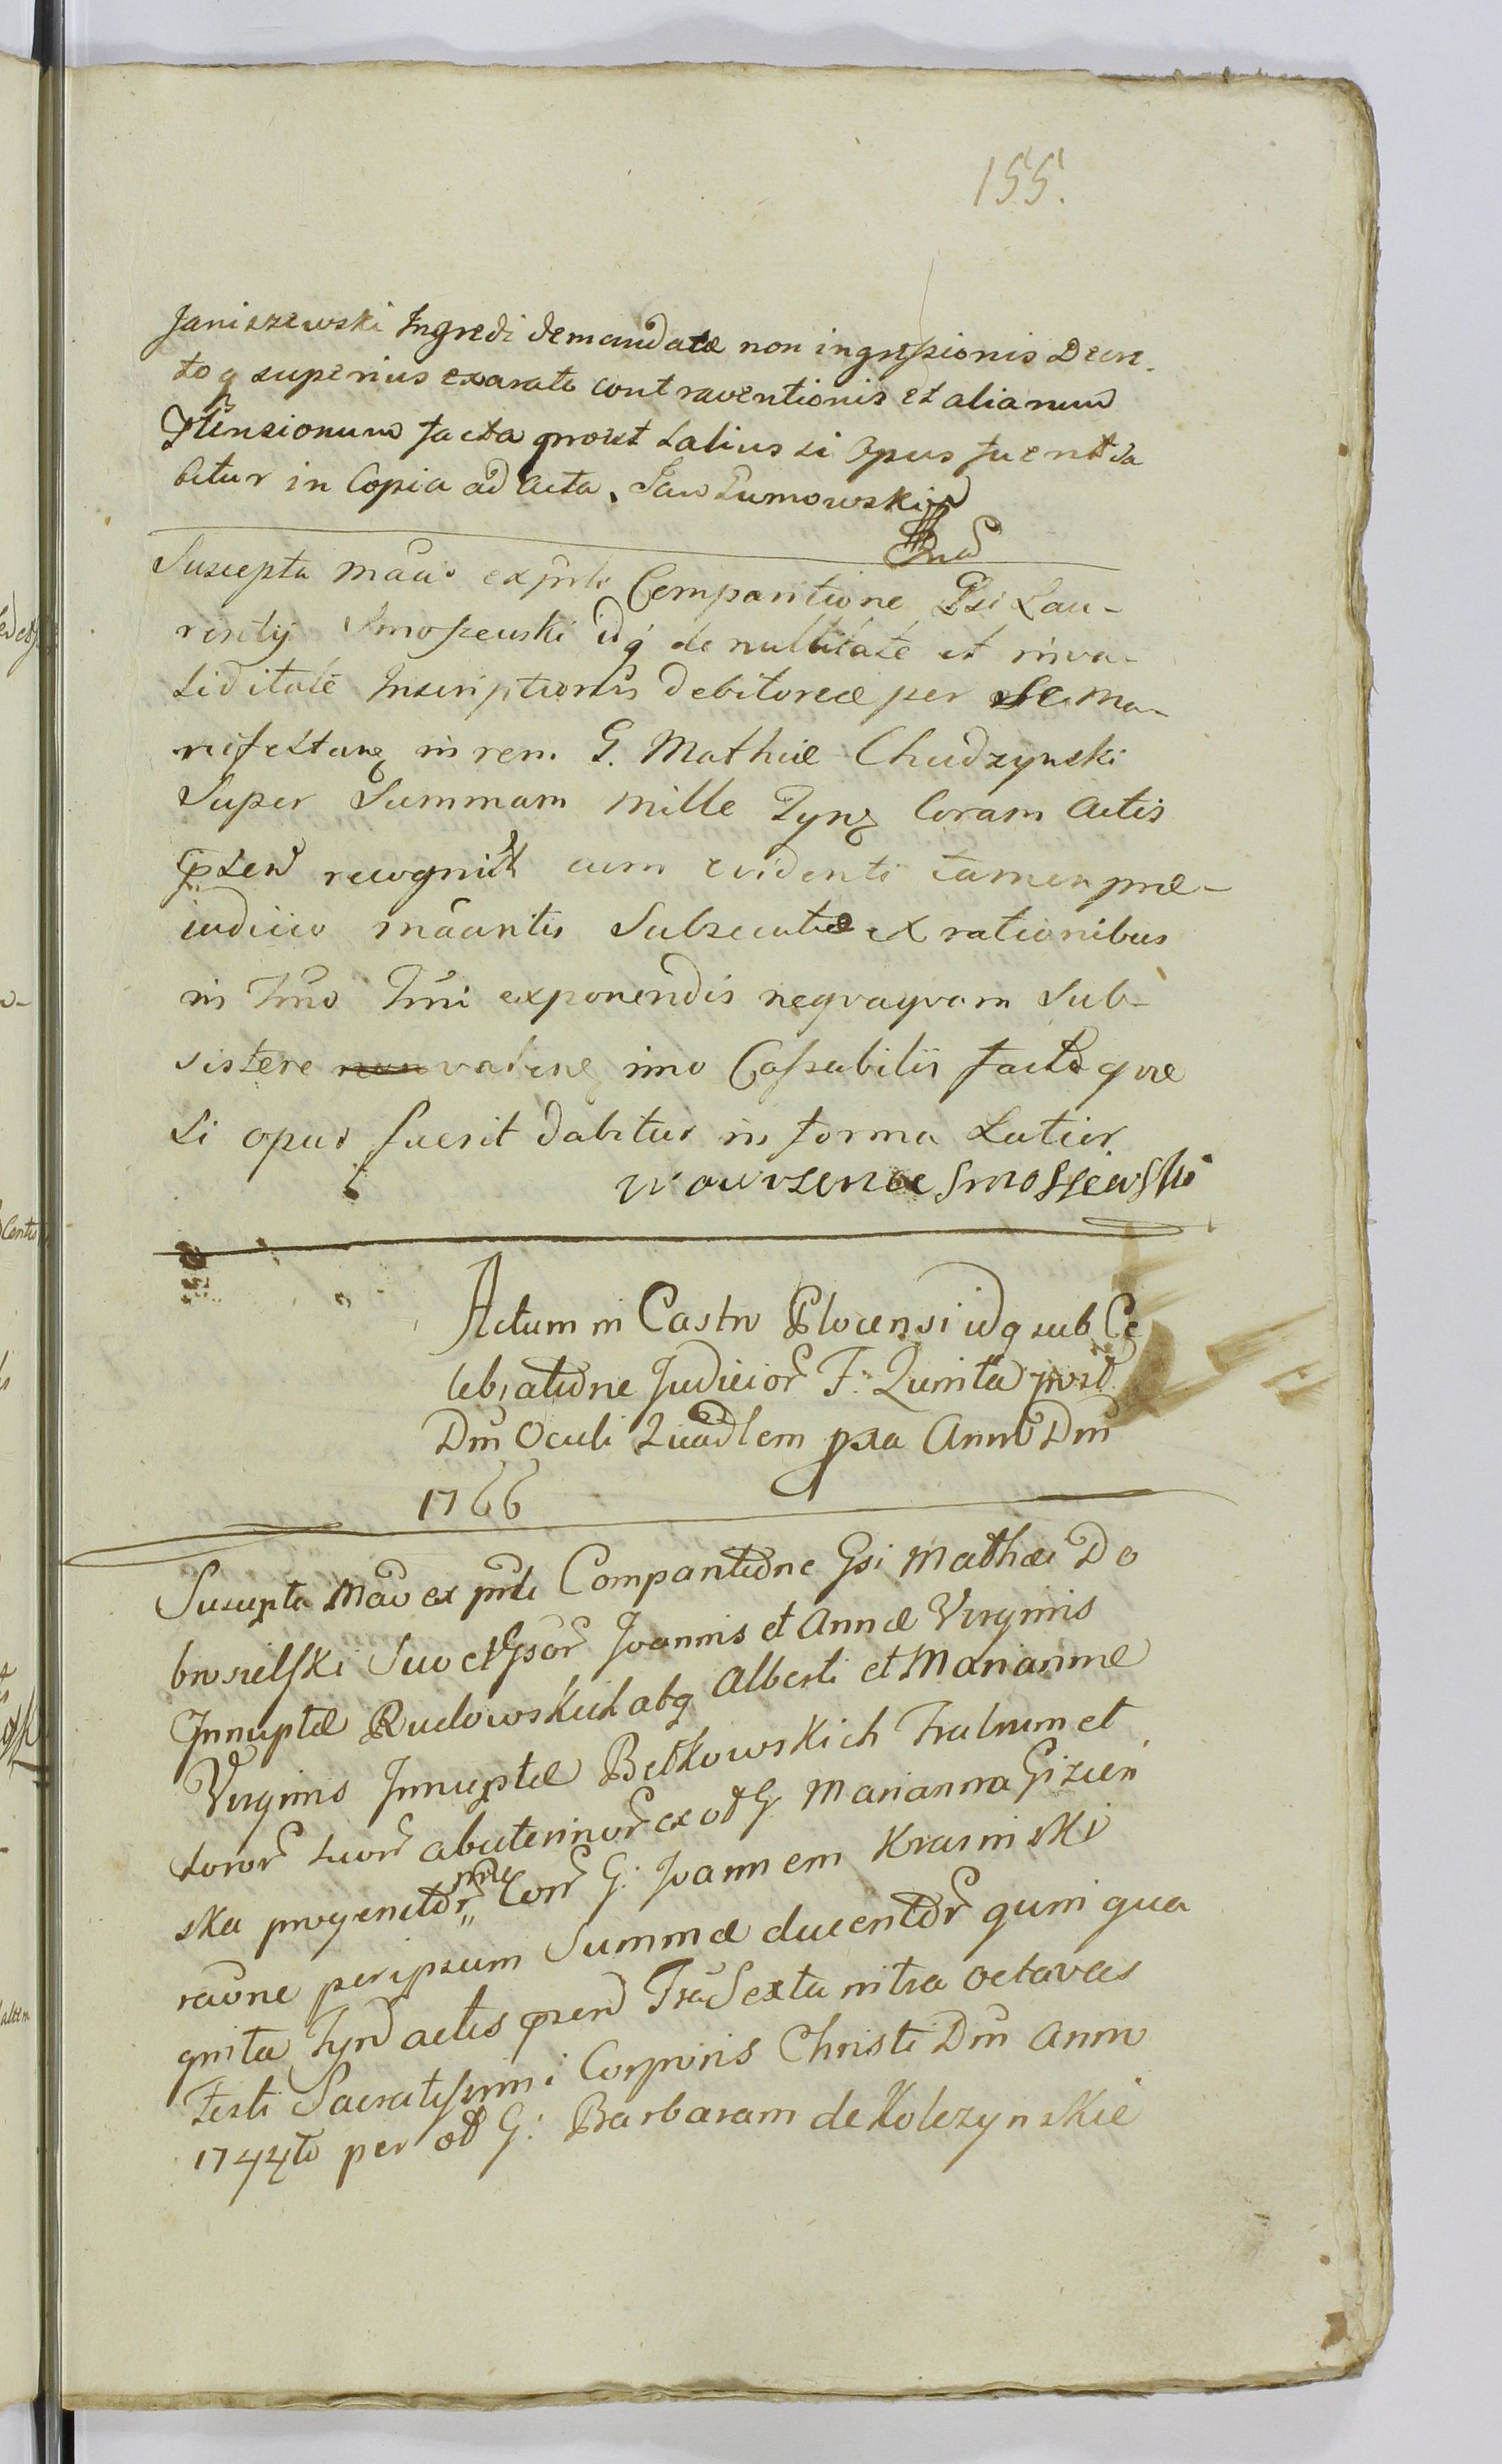 155.
Janiszewski Ingredi demandatæ non ingressionis Decre-
toq superius exarato contraventionis et aliarum
Ptensionum facta prout latius si opus fuerit da
bitur in Copia ad acta. Jan Zumowski
Suscepta mãno ex pnti Comparitione Gsi Lau-
rentij Smoszewski idq de nullitate et inva-
liditate Inscriptionis debitoreæ per se ma-
nifestanq in rem G. Mathiæ Chudzynski
Super Summam mille Tynf Coram Actis
pnten recognit cum evidenti tamen præ-
iudicio mãantis Subsecutæ ex rationibus
in Tmo Tmi exponendis neqvaqvam Sub-
sistere valenq imo Cassabilis facta qvæ
Si opus fuerit dabitur in forma Latior
Wawrzeniec Smoszewski
Actum in Castro Plocensi idq sub Ce
lebratione Judicior F. Quinta post
Dm Oculi Quadlem pxa Anno Dni
1766
Suscepta Mão ex pnti Comparitione Gsi Mathæi Do
brosielski Suo et Gsor Joannis et Annæ Virginis
Innuptæ Rudowskich atq Alberti et Mariannæ
Virginis Innuptæ Betkowskich Fratrum et
Soror suor abuterinor ex olt G. Marianna Gizen
ska progenitor nõie Cor G: Joannem Krasinski
raõne peripsum Summæ ducentor quin qua
ginta Tynf actis pnten Fria Sexta intra octavas
Festi Sacratissimi Corporis Christi Dni Anno
1744to per olt G: Barbaram de Kolczynskie